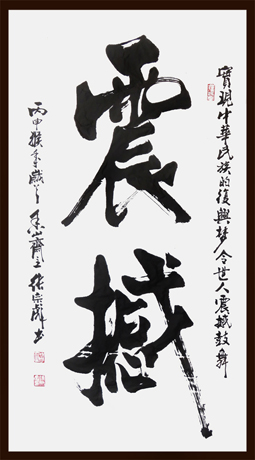 實現中華民族的復興梦令世人震撼鼓舞
震撼
丙申猴年歲
齋主張宗彪书